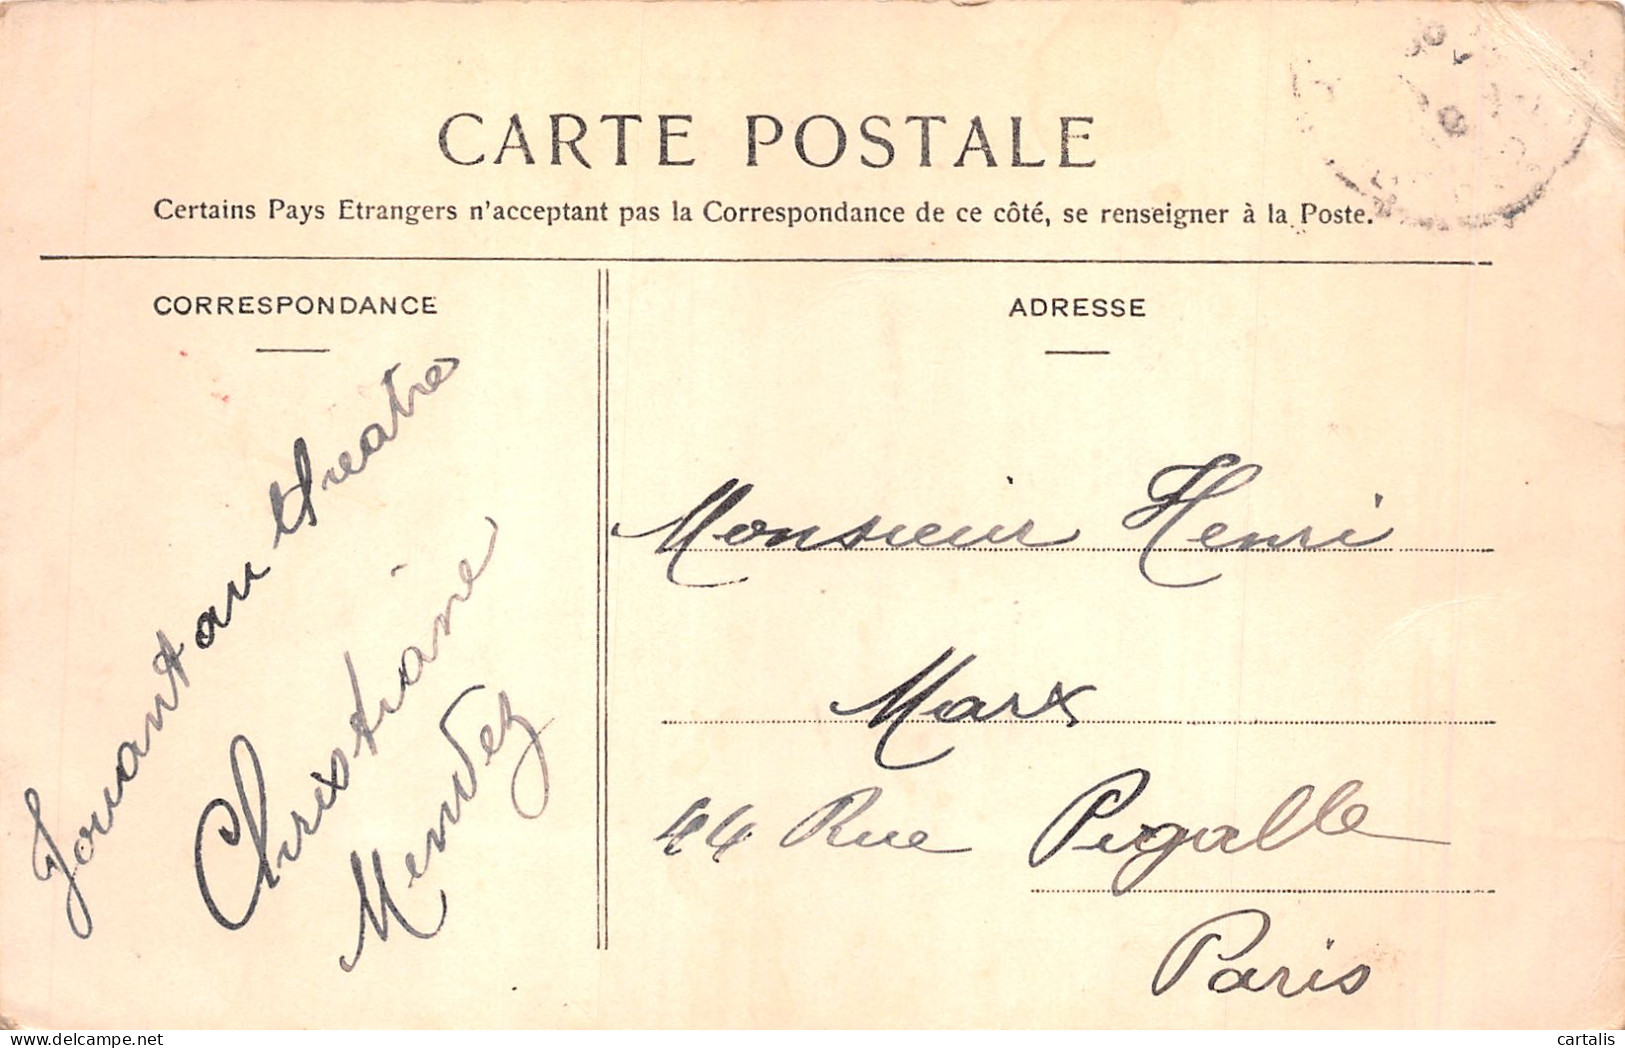 CARTE POSTALE
Certains Pays Etrangers n'acceptant pas la Correspondance de ce côté, se renseigner à la Poste.
CORRESPONDANCE
Jouant au theatre
Christiane
Mendez
ADRESSE
Monsieur Henri
Marx
44 Rue Pigalle
Paris
cartalis